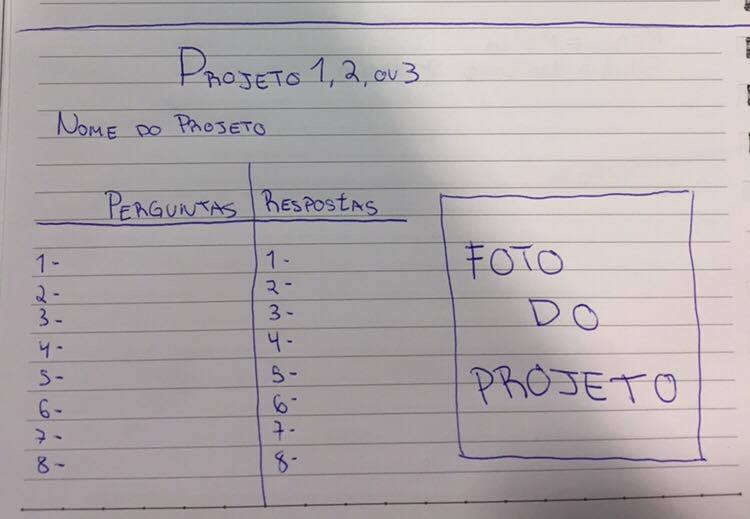 PROJETO 1, 2, OU 3
NOME DO PROJETO
PERGUNTAS RESPOSTAS
1- 1-
2- 2-
3- 3-
4- 4-
5- 5-
6- 6-
7- 7-
8- 8-
FOTO
DO
PROJETO